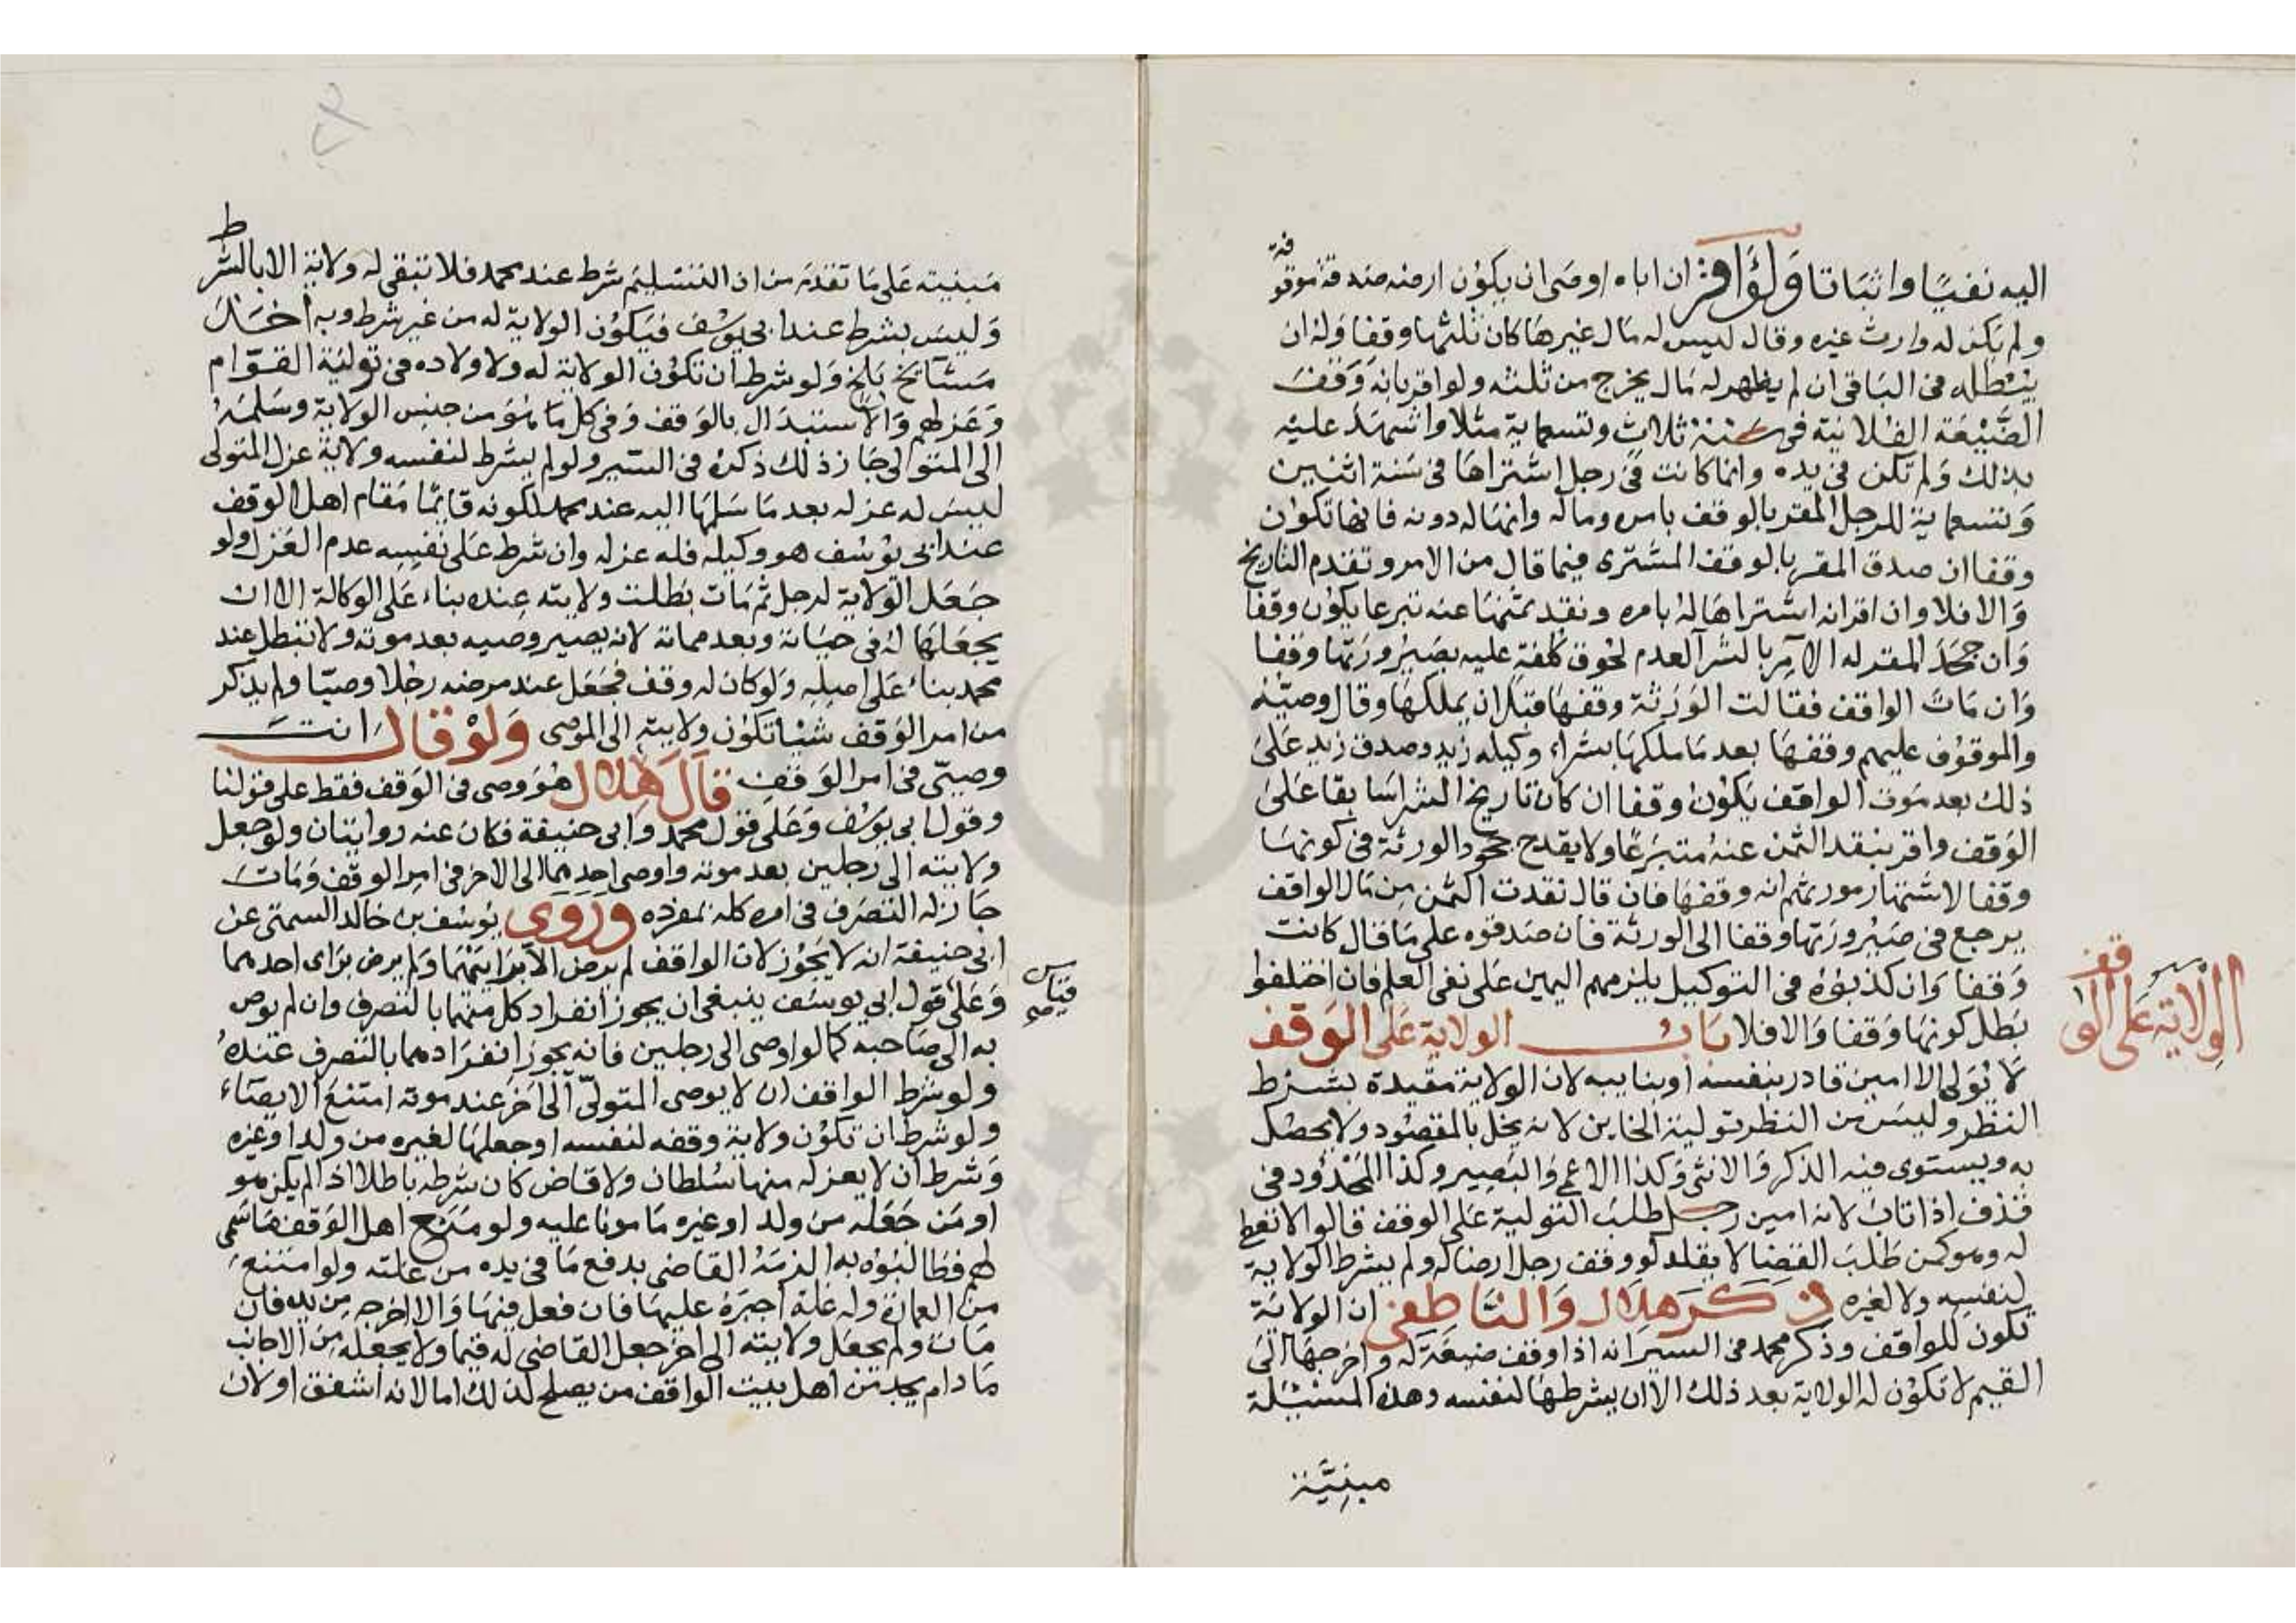 اليه نفيا واثباتا ولو اقر ان اباه اوصى ان يكون ارضه صدقة موقوفة
ولم يكن له وارث غيره وقال ليس له مال غيرها كان ثلثها وقفا وله ان
يبطله فى الباقى ان لم يظهر له مال يخرج من ثلثه ولو اقر بانه وقف
الضيعة الفلانية فى سنة ثلاث وتسعماية مثلا واشهد عليه
بذلك ولم تكن فى يده وانما كانت فى رجل اشتراها فى سنة اثنين
وتسعماية للرجل المقر بالوقف بامره وماله وانها له دونه فانها تكون
وقفا ان صدق المقر بالوقف المشترى فيما قال من الامر وتقدم التاريخ
والا فلا وان اقر انه اشتراها له بامره ونقد ثمنها عنه تبرعا يكون وقفا
وان جحد المقر له الآمر بالشرا لعدم لحوق كلفة عليه بصيرورتها وقفا
وان مات الواقف فقالت الورثة وقفها قبل ان يملكها وقال وصيه
والموقوف عليهم وقفها بعد ما ملكها بشراء وكيله زيد وصدق زيد على
ذلك بعد موت الواقف يكون وقفا ان كان تاريخ الشرا سابقا على
الوقف واقر بنقد الثمن عنه متبرعا ولا يقدح جحود الورثة فى كونها
وقفا لاشتهار مورثهم انه وقفها فان قال نقدت الثمن من مال الواقف
يرجع فى صيرورتها وقفا الى الورثة فان صدقوه على ما قال كانت
وقفا وان كذبوه فى التوكيل يلزمهم اليمين على نفى العلم فان اختلفوا
بطل كونها وقفا والا فلا باب الولاية على الوقف
الولاية على الوقف
لا يولى الا امين قادر بنفسه او بنايبه لان الولاية مقيدة بشرط
النظر وليس من النظر تولية الخاين لانه يخل بالمقصود ولا يحصل
به ويستوى فيه الذكر والانثى وكذا الاعمى والبصير وكذا المحدود فى
قذف اذا تاب لانه امين رجل طلب التولية على الوقف قالوا لا تعطى
له وهو كمن طلب القضا لا يقلد لو وقف رجل ارضا له ولم يشرط الولاية
لنفسه ولا لغيره ذكر هلال والناطفى ان الولاية
تكون للواقف وذكر محمد فى السير انه اذا وقف ضيعة له واخرجها الى
القيم لا تكون له الولاية بعد ذلك الا ان يشرطها لنفسه وهذه المسئلة
مبنية
مبنية على ما تقدم من ان التسليم شرط عند محمد فلا تبقى له ولاية الا بالشرط
وليس بشرط عند ابى يوسف فيكون الولاية له من غير شرط وبه اخذ
مشائخ بلخ ولو شرط ان تكون الولاية له ولاولاده فى تولية القوام
وعزلهم والاستبدال بالوقف وفى كل ما هو من جنس الولاية وسلمه
الى المتولى جاز ذلك ذكره فى السير ولو لم يشرط لنفسه ولاية عزل المتولى
ليس له عزله بعد ما سلمها اليه عند محمد لكونه قايما مقام اهل الوقف
عند ابى يوسف هو وكيله فله عزله وان شرط على نفسه عدم العزل ولو
جعل الولاية لرجل ثم مات بطلت ولايته عنده بناء على الوكالة الا ان
يجعلها له فى حياته وبعد مماته لانه يصير وصيه بعد موته ولا تبطل عند
محمد بناء على اصله ولو كان له وقف فجعل عند مرضه رجلا وصيا ولم يذكر
من امر الوقف شيئا تكون ولايته الى الموصى ولو قال انت
وصيى فى امر الوقف قال هلال هو وصى فى الوقف فقط على قولنا
وقول ابى يوسف وعلى قول محمد وابى حنيفة فكان عنه روايتان ولو جعل
ولايته الى رجلين بعد موته واوصى احدهما الى الاخر فى امر الوقف ومات
جاز له التصرف فى امره كله بمفرده وروى يوسف بن خالد السمتى عن
ابى حنيفة انه لا يجوز لان الواقف لم يرض الا برايتهما ولم يرض براى احدهما
وعلى قول ابى يوسف ينبغى ان يجوز انفراد كل منهما بالتصرف وان لم يوص
به الى صاحبه كما لو اوصى الى رجلين فانه يجوز انفرادهما بالتصرف عنده
ولو شرط الواقف ان لا يوصى المتولى الى اخر عند موته امتنع الايصاء
ولو شرط ان تكون ولاية وقفه لنفسه او جعلها لغيره من ولد او غيره
وشرط ان لا يعزله منها سلطان ولا قاض كان شرطه باطلا اذا لم يكن هو
او من جعله من ولد او غيره مامونا عليه ولو منع اهل الوقف ما سمى
لهم فطالبوه به الزمه القاضى بدفع ما فى يده من غلته ولو امتنع
من العمارة وله غلة اجبره عليها فان فعل فيها والا اخرجه من يده فان
مات ولم يجعل ولايته الى اخر جعل القاضى له قيما ولا يجعله من الاجانب
ما دام يجد من اهل بيت الواقف من يصلح لذلك اما لانه اشفق او لان